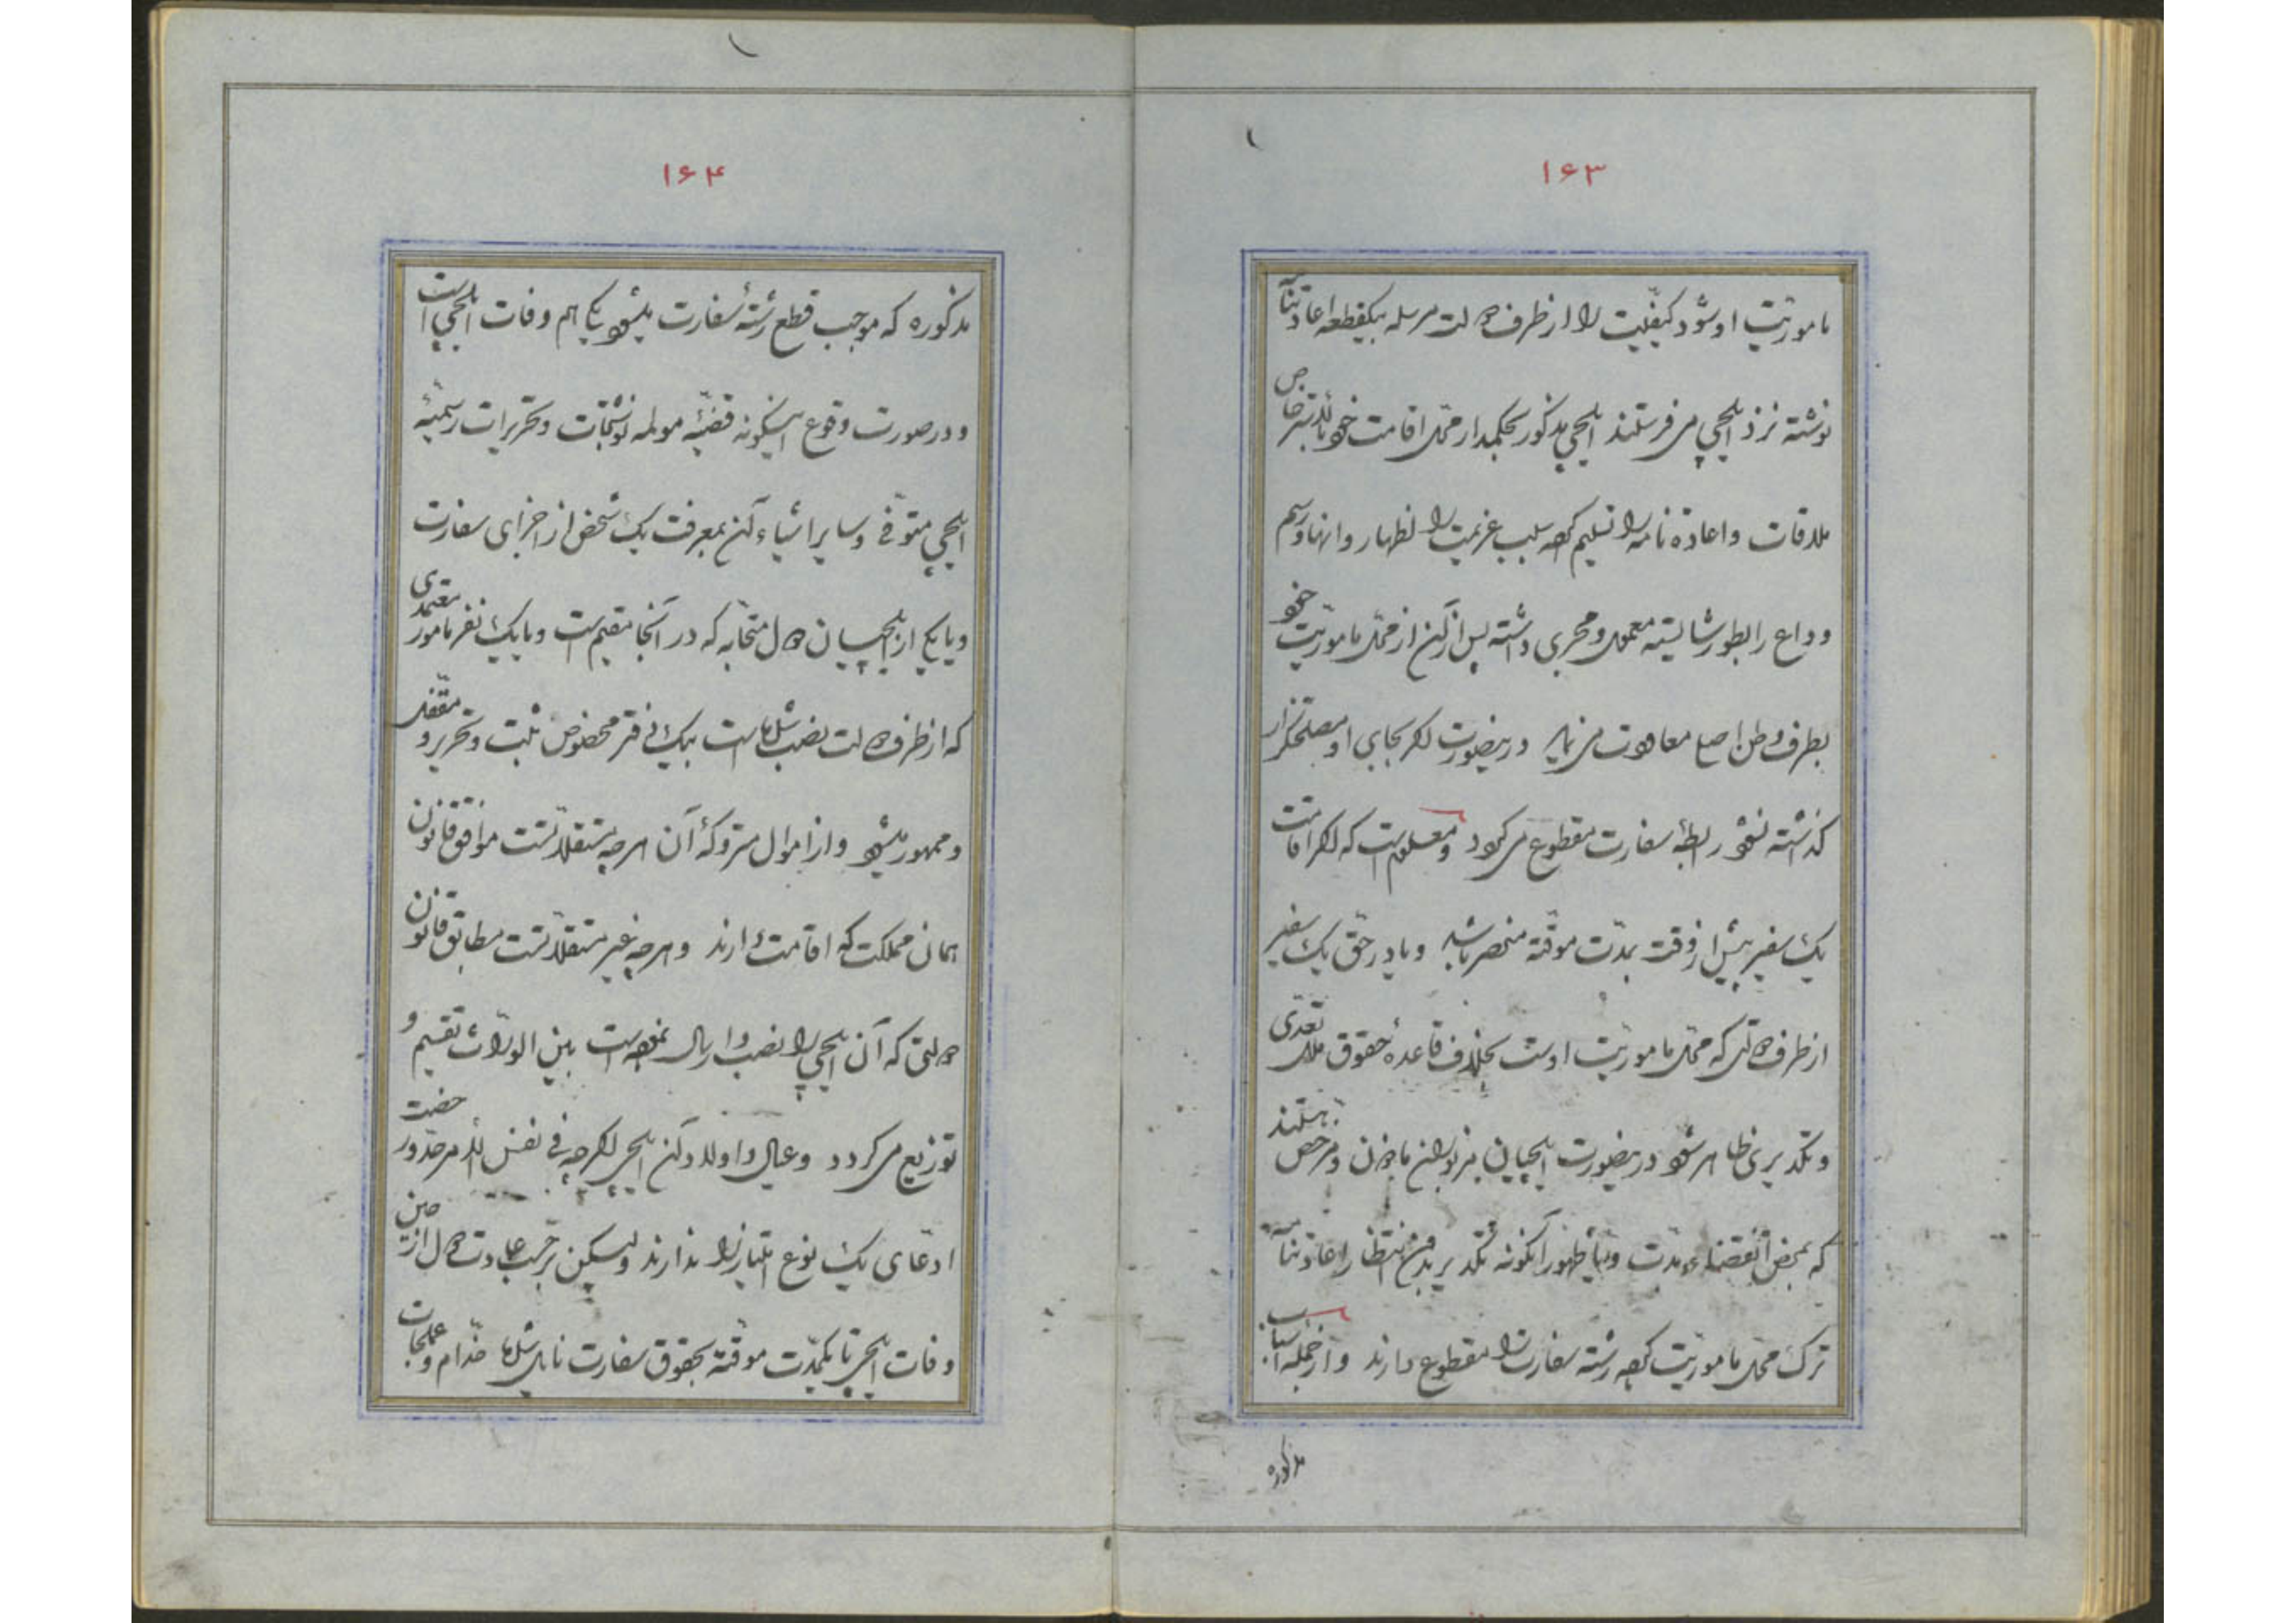 ۱۶۳
ماموریت او شود کیفیت را از طرف دولت مرسله بیکقطعه اعادتنامه
نوشته نزد ایلچی می فرستند ایلچی مذکور بحکمدار محل اقامت خود بالذیر خاص
ملاقات و اعاده نامه را تسلیم کرده سبب عزیمت را اظهار و انها و رسم
وداع را بطور شایسته معمول و مجری داشته پس از آن از محل ماموریت خود
بطرف وطن اصلی معاودت می نماید درینصورت اگر بجای او مصلحتگزار
گذاشته نشود رابطه سفارت مقطوع می گردد و معلوم است که اگر اقامت
یک سفیر پیش از وقت بمدت موقته منحصر باشد و یا در حق یک سفیر
از طرف دولتی که محل ماموریت اوست بخلاف قاعده حقوق ملل تعدی
و تکدیری ظاهر شود درینصورت ایلچیان مزبوران ماذون و مرخص هستند
که بمحض انقضاء مدت و یا ظهور آنگونه تکدیر بدون انتظار اعادتنامه
ترک محل ماموریت کرده رشته سفارت را مقطوع دارند و از جمله اسباب
مذکوره
۱۶۴
مذکوره که موجب قطع رشته سفارت میشود یکی هم وفات ایلچی است
و در صورت وقوع اینگونه قضیه مولمه نوشتجات و تحریرات رسمیه
ایلچی متوفی و سایر اشیاء آن بمعرفت یک شخص از اجزای سفارت
و یا یکی از ایلچیان دول متحابه که در آنجا مقیم است و یا یک نفر مامور معتمدی
که از طرف دولت نصب شده است بیک دفتر مخصوص ثبت و تحریر و مقفل
و ممهور میشود و از اموال متروکه آن هرچه مستقلاتست موافق قانون
همان مملکت که اقامت دارند و هرچه غیر مستقلاتست مطابق قانون
دولتی که آن ایلچی را نصب و ارسال نموده است بین الوراث تقسیم و
توزیع می گردد و عیال و اولاد آن ایلچی اگرچه فی نفس الامر حضّ و
ادعای یک نوع امتیاز را ندارند ولیکن برحسب عادت دول از حین
وفات ایلچی تا یکمدت موقته بحقوق سفارت نایل شده خدام و عملجات